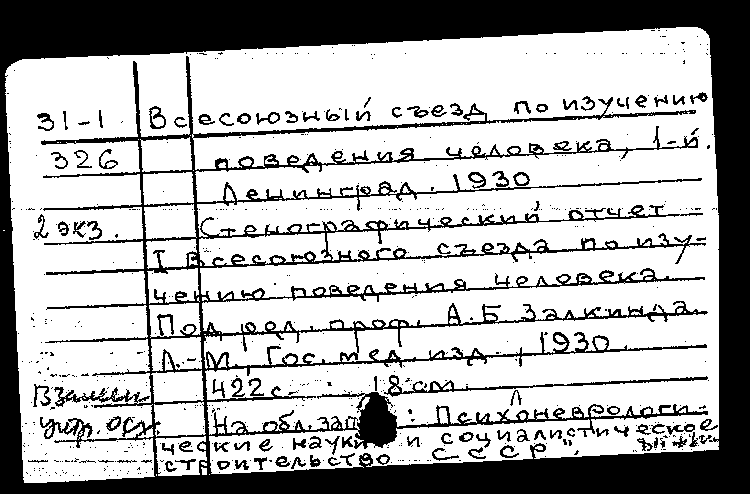 31-1 Всесоюзный съезд по изучению
326 поведения человека, 1-й.
Ленинград. 1930
2 экз. Стенографический отчет
I Всесоюзного съезда по изу-
чению поведения человека.
Под ред. проф. А.Б Залкинда.
Л.-М., Гос. мед. изд., 1930.
Взамен 422с. 18см.
На обл. заг : Психоневрологи-
ческие науки и социалистическое
строительство СССР".